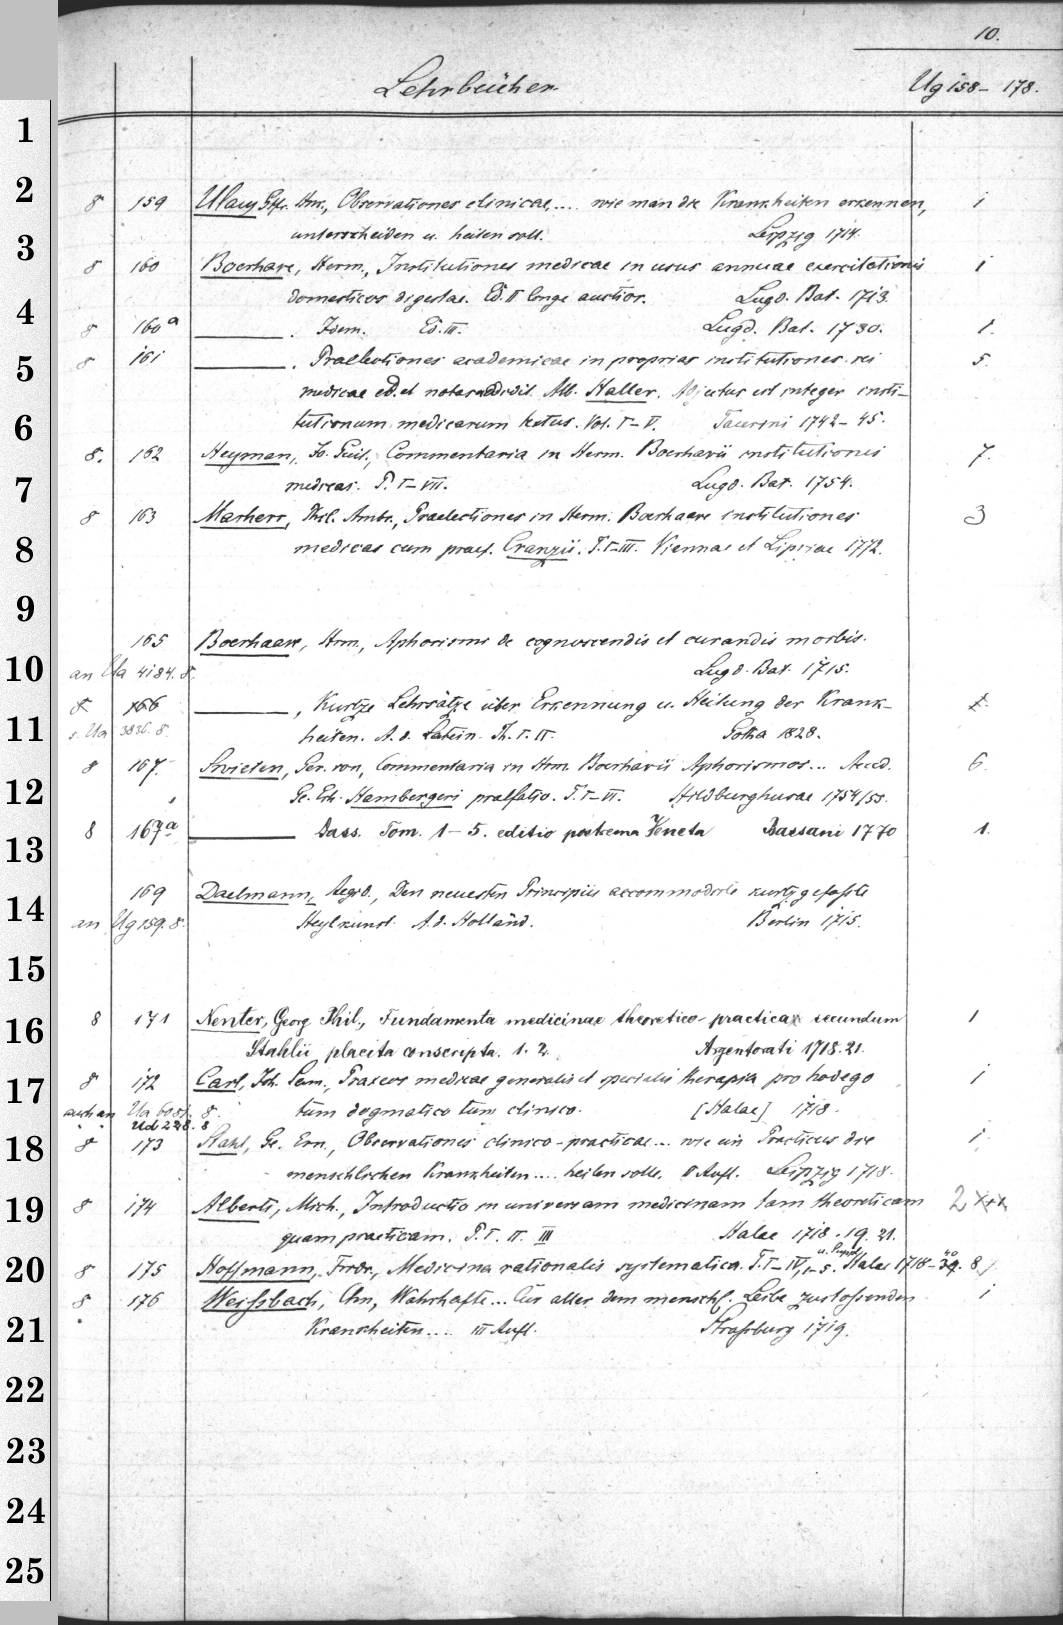 10.
Lehrbücher Ug 158–178.
8 159 Ulau Gttfr. Hnr., Observationes clinicae.... wie man die Krankheiten erkennen, 1
unterscheiden u. heilen soll. Leipzig 1714.
8 160 Boerhave, Herm., Institutiones medicae in usus annuae exercitationis 1
domesticos digestae. Ed. II longe auctior. Lugd. Bat. 1713.
8 160a ——. Idem. Ed. III. Lugd. Bat. 1730. 1.
8 161 ——. Praelectiones academicae in proprias institutiones rei 5.
medicae ed. et notas addidit Alb. Haller. Adjectus est integer insti-
tutionum medicarum textus. Vol. I–V. Taurini 1742–45.
8. 162 Heyman, Jo. Guil., Commentaria in Herm. Boerhavii institutiones 7.
medicas. P. I–VII. Lugd. Bat. 1754.
8 163 Marherr, Phil. Ambr., Praelectiones in Herm. Boerhaave institutiones 3
medicas cum praef. Cranzii. T. I–III. Viennae et Lipsiae 1772.
165 Boerhaave, Hrm., Aphorismi de cognoscendis et curandis morbis.
an Ua 4184. 8. Lugd. Bat. 1715.
8 166 ——, Kurtze Lehrsätze über Erkennung u. Heilung der Krank-
s. Ua 3836. 8. heiten. A. d. Latein. Th. I. II. Gotha 1828.
8 167. Swieten, Ger. van, Commentaria in Hrm. Boerhavii Aphorismos... Acced. 6.
Ge. Erh. Hambergeri praefatio. T. I–VI. Hildburghusae 1754/55.
8 167a —— Dass. Tom. 1–5. editio postrema Veneta Bassani 1770 1.
169 Daelmann, Aegid., Den neuesten Principiis accommodirte kurtzgefaßte
an Ug 159. 8. Heylkunst. A. d. Holländ. Berlin 1715.
8 171 Nenter, Georg Phil., Fundamenta medicinae theoretico-practica secundum 1
Stahlii placita conscripta. 1. 2. Argentorati 1718. 21.
8 172 Carl, Joh. Sam., Praxeos medicae generalis et specialis therapia pro hodego 1
auch an Ua 6051. 8. tum dogmatico tum clinico. [Halae] 1718.
Ud 228. 8
8 173 Stahl, Ge. Ern., Observationes clinico-practicae... wie ein Practicus die 1.
menschlichen Krankheiten.... heilen solle. II Aufl. Leipzig 1718.
8 174 Alberti, Mich., Introductio in universam medicinam tam theoreticam 2 xxx
quam practicam. P. I. II. III Halae 1718. 19. 21.
8 175 Hoffmann, Frdr., Medicina rationalis systematica. T. I–IV, 1–5. u. Suppl. Halae 1718–39. 40 8.
8 176 Weißbach, Chn, Wahrhafte... Cur aller dem menschl. Leibe zustoßenden 1
Kranckheiten.... III Aufl. Straßburg 1719.
1
2
3
4
5
6
7
8
9
10
11
12
13
14
15
16
17
18
19
20
21
22
23
24
25